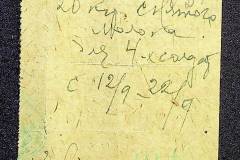 20 кр. снятого
молока
для 4-х солдат
с 12/9 22/9